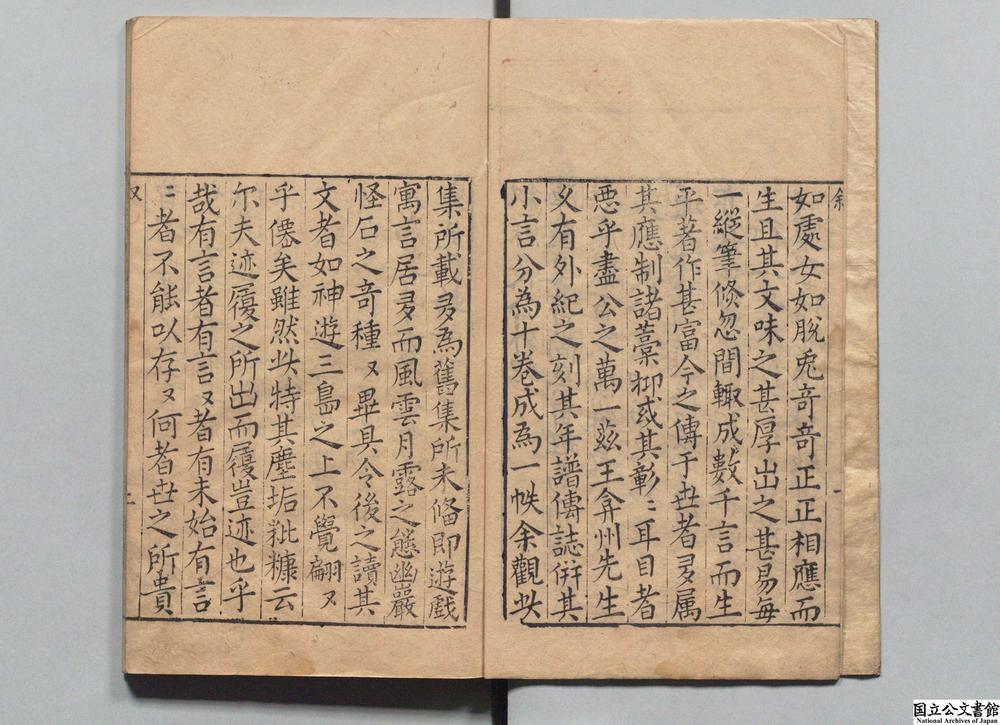 如處女如脫兎竒竒正正相應而
生且其文味之甚厚出之甚易每
一縱筆倏忽間輙成數千言而生
平著作甚富今之傳于世者多属
其應制諸藁抑或其彰〻耳目者
惡乎盡公之萬一茲王弇州先生
又有外紀之刻其年譜傳誌併其
小言分為十卷成為一帙余觀此
叙
一
集所載多為舊集所未俻即遊戲
寓言居多而風雲月露之態幽巖
怪石之竒種〻畢具令後之讀其
文者如神遊三島之上不覺翩〻
乎僊矣雖然此特其塵垢粃糠云
尔夫迹履之所出而履豈迹也乎
哉有言者有言〻者有未始有言
〻者不能以存〻何者世之所貴
叙
二
国立公文書館
National Archives of Japan